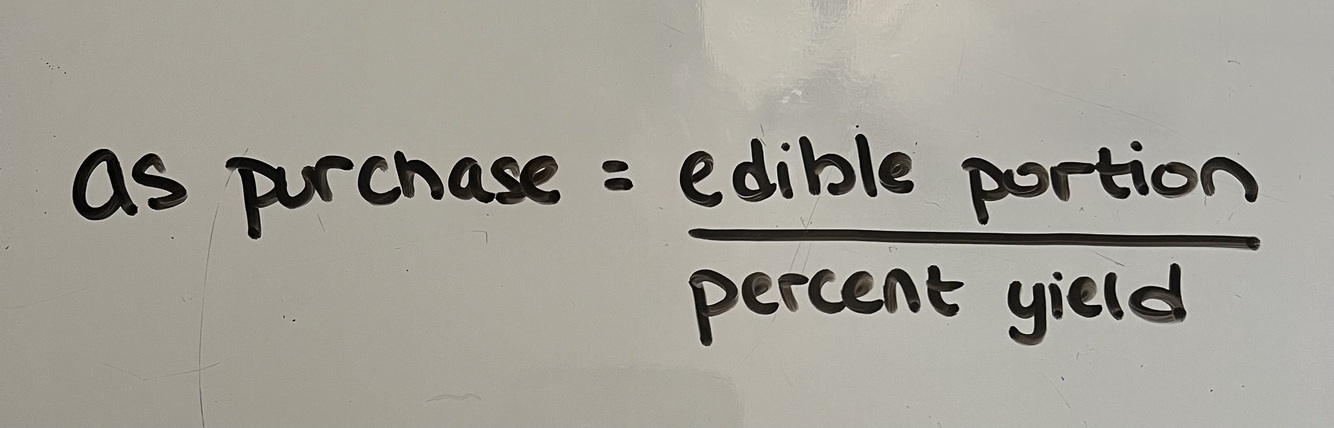 as purchase = edible portion
percent yield